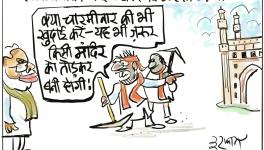 क्या चारमीनार की भी
खुदाई करें – यह भी ज़रूर
किसी मंदिर
को तोड़कर
बनी होगी!
इरफ़ान